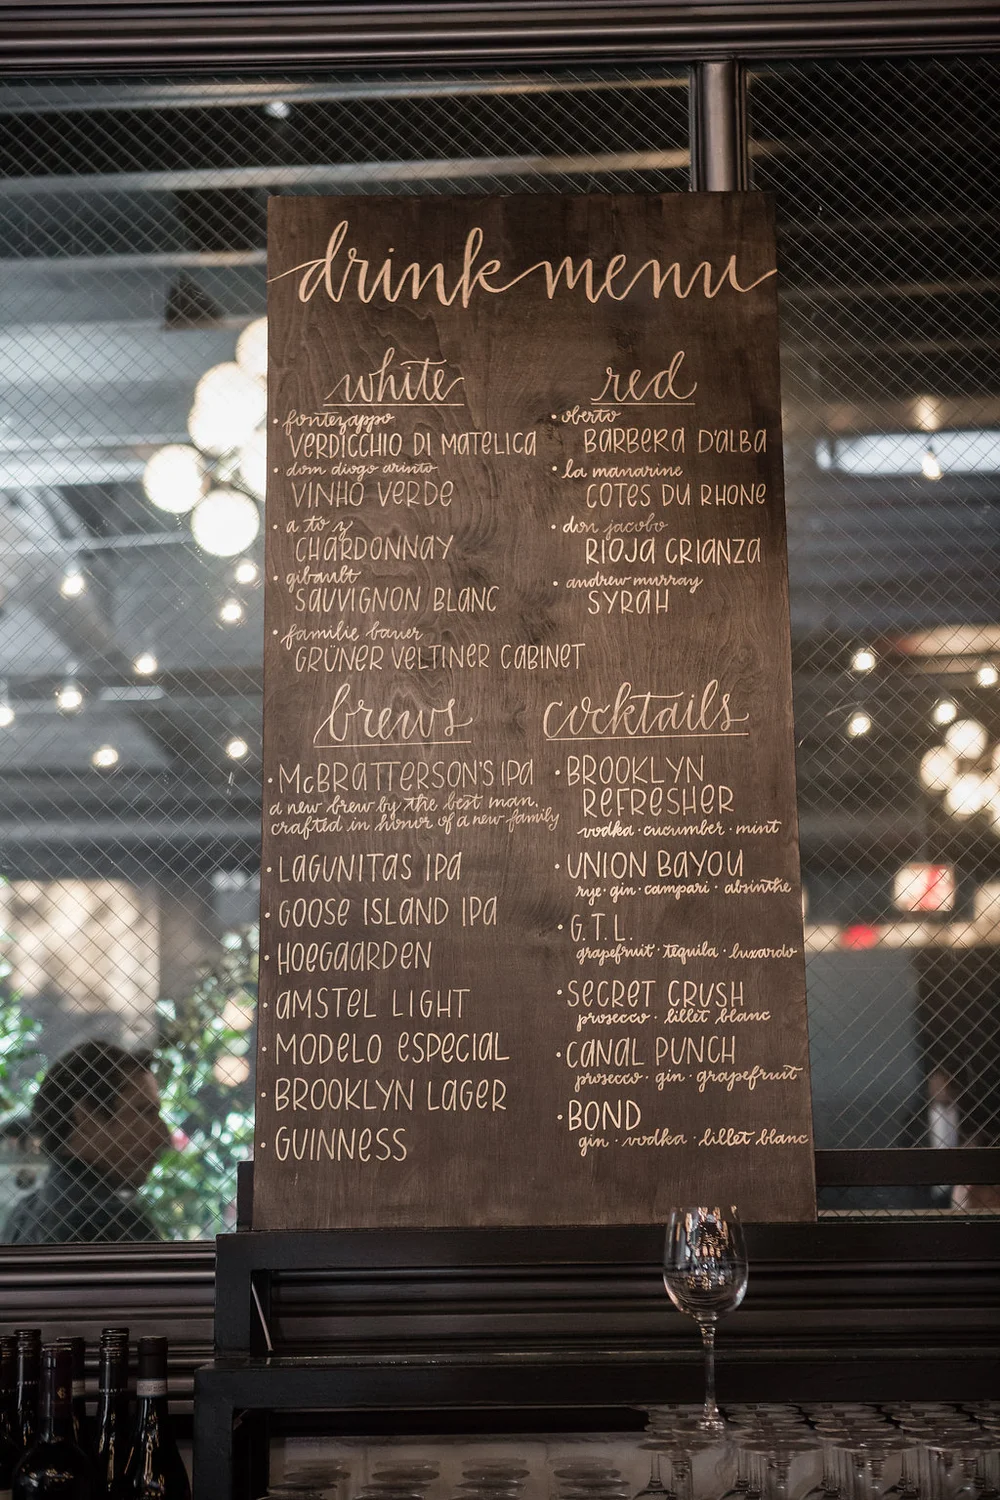 drink menu
white
• fontezappo
VERDICCHIO DI MATELICA
• dom diogo arinto
VINHO VERDE
• a to z
CHARDONNAY
• gibault
SAUVIGNON BLANC
• familie bauer
GRÜNER VELTINER CABINET
red
• oberto
BARBERA D'ALBA
• la manarine
COTES DU RHONE
• don jacobo
RIOJA CRIANZA
• andrew murray
SYRAH
brews
• McBRATTERSON'S IPA
a new brew by the best man.
crafted in honor of a new family
• LAGUNITAS IPA
• GOOSE ISLAND IPA
• HOEGAARDEN
• AMSTEL LIGHT
• MODELO ESPECIAL
• BROOKLYN LAGER
• GUINNESS
cocktails
• BROOKLYN
REFRESHER
vodka · cucumber · mint
• UNION BAYOU
rye · gin · campari · absinthe
• G.T.L.
grapefruit · tequila · luxardo
• SECRET CRUSH
prosecco · lillet blanc
• CANAL PUNCH
prosecco · gin · grapefruit
• BOND
gin · vodka · lillet blanc